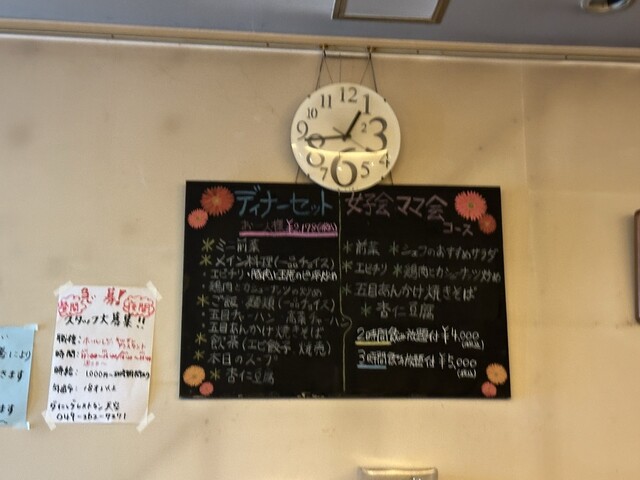 12
1
11
10
2
9
3
8
4
7
6
5
ディナーセット
お一人様 ¥2178(税込)
✳ミニ前菜
✳メイン料理(一品チョイス)
エビチリ・豚肉と玉子の
鶏肉とカシューナッツの炒め
✳ご飯・麺類(一品チョイス)
五目チャーハン 高菜チャーハン
五目あんかけ焼きそば
✳飲茶(エビ餃子 焼売)
✳本日のスープ
✳杏仁豆腐
女子会ママ会
コース
✳前菜 ✳シェフのおすすめサラダ
✳エビチリ ✳鶏肉とカシューナッツ炒め
✳五目あんかけ焼きそば
✳杏仁豆腐
2時間飲み放題付 ¥4,000
(税込)
3時間飲み放題付 ¥5,000
(税込)
急募!
夜間
夜間
スタッフ大募集!!
職種:ホール
時間:
時給:1000円〜
ダイニングレストラン